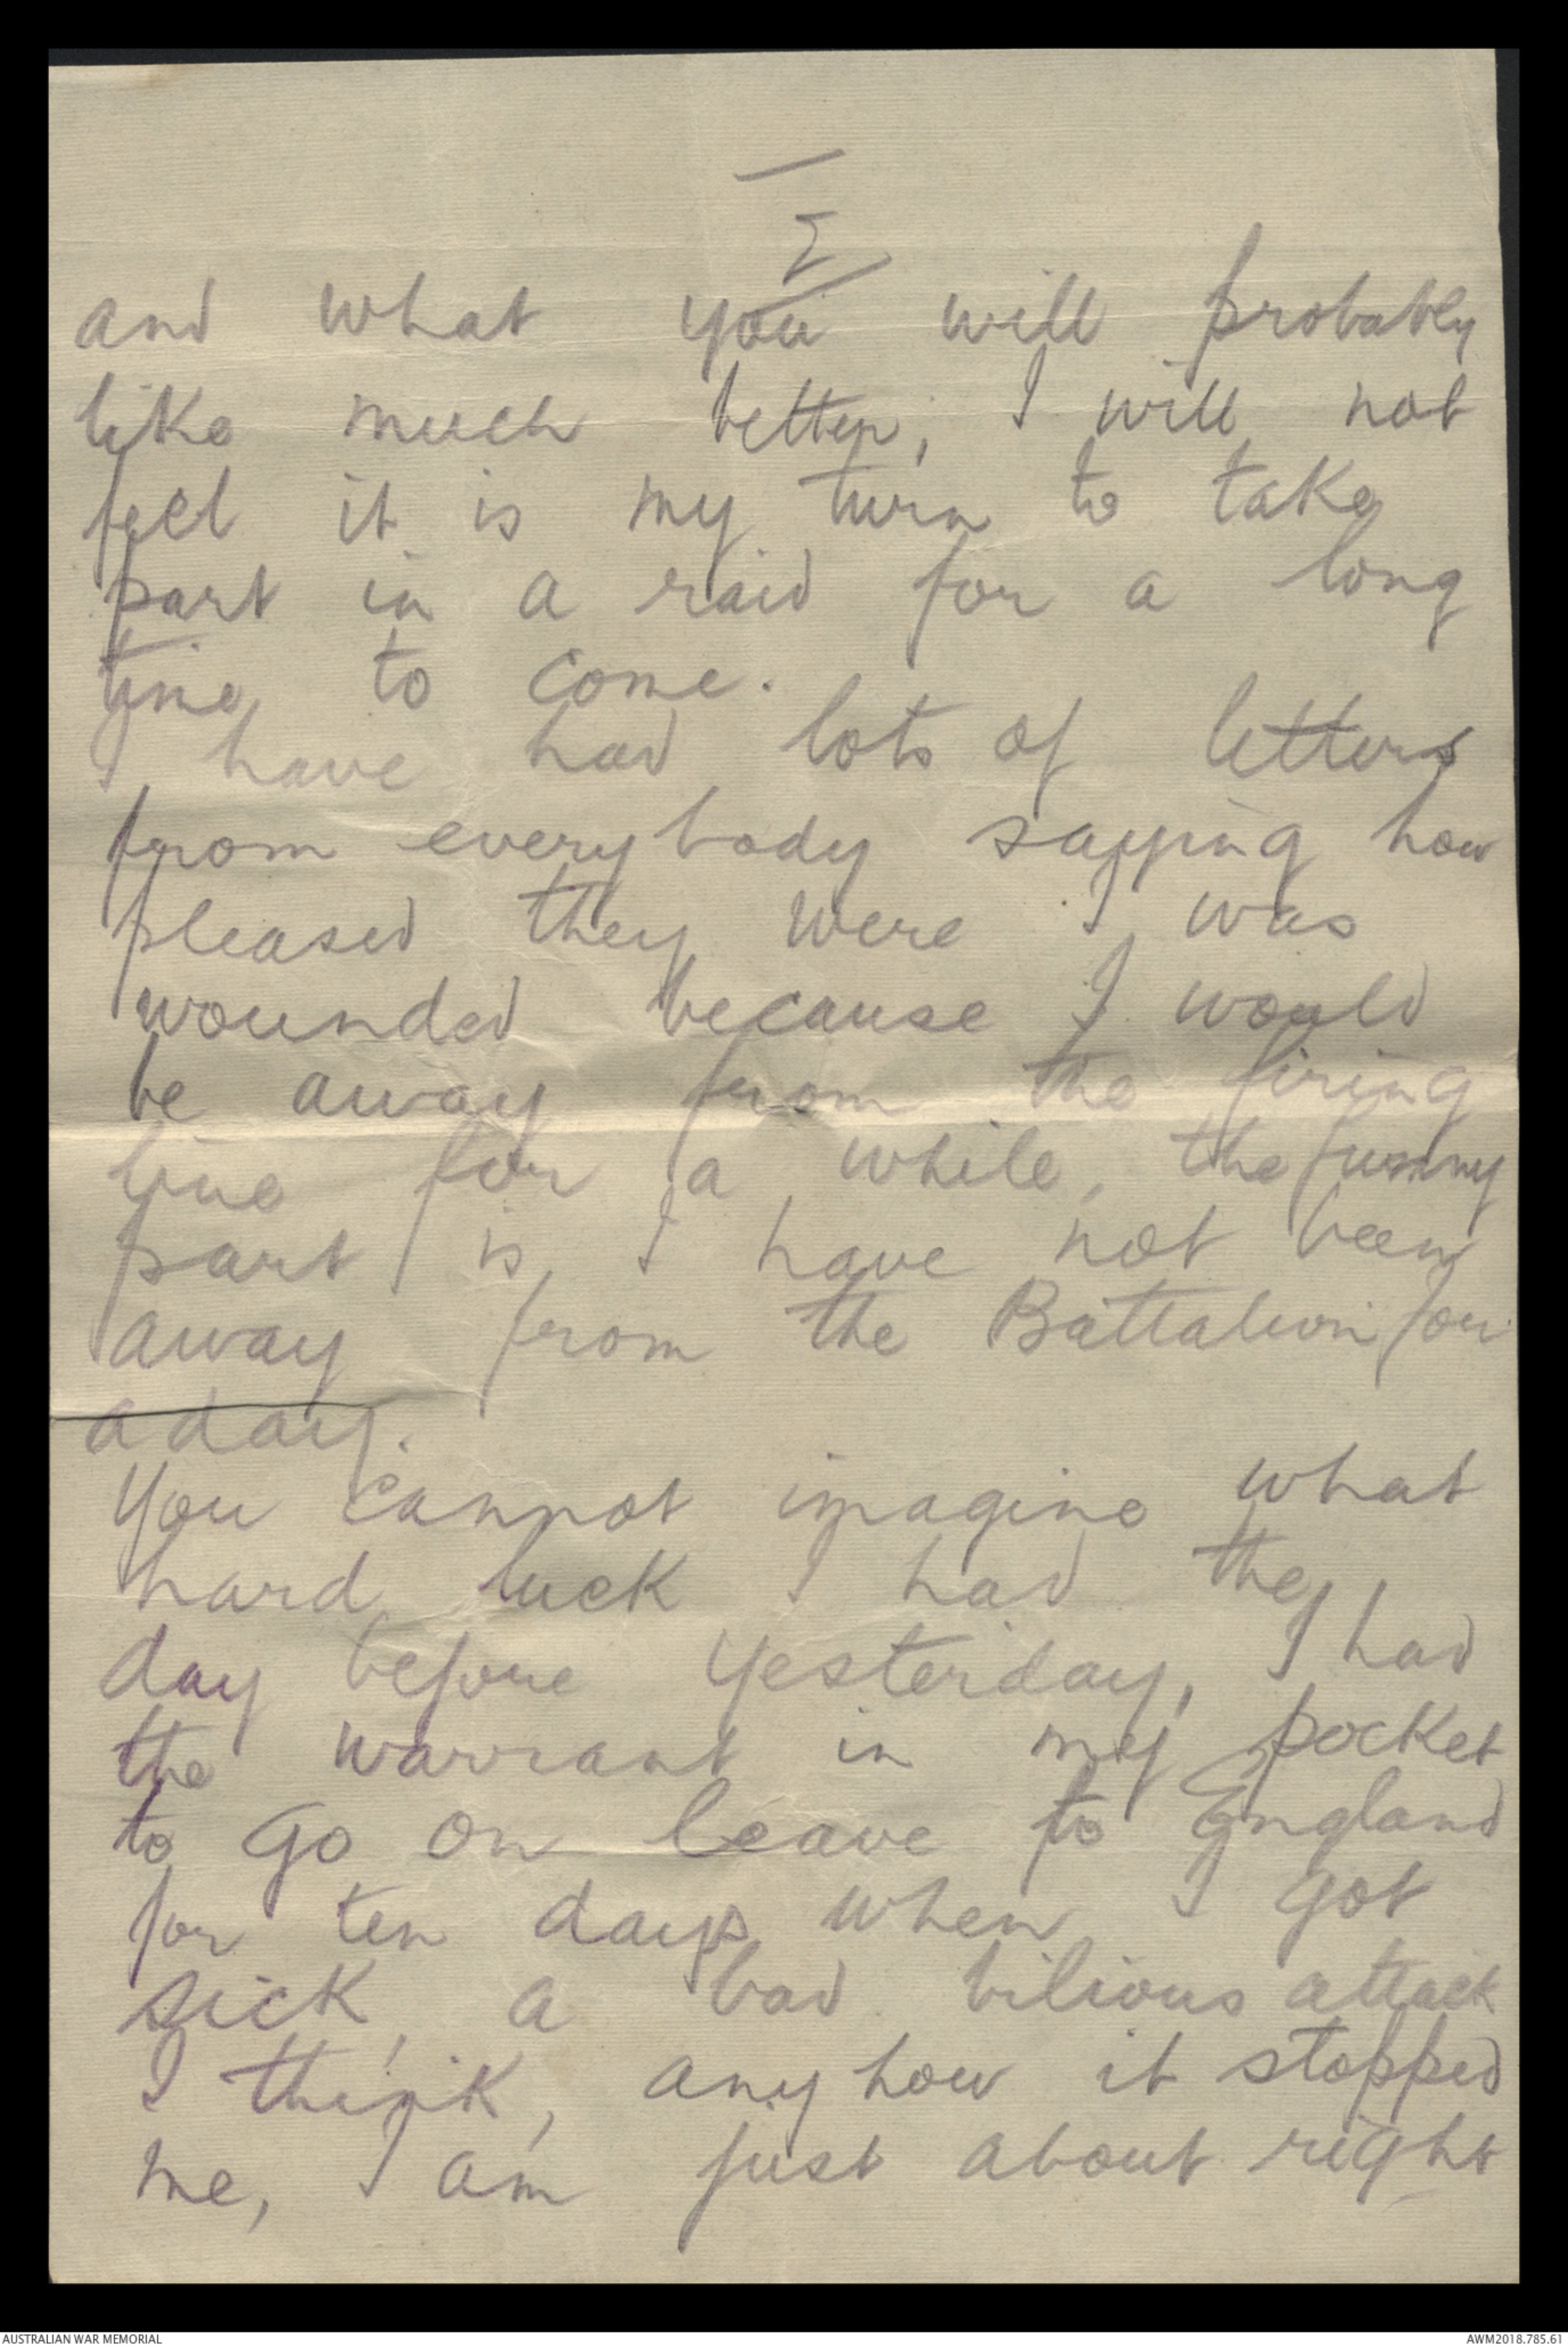 and what you will probably
like much better, I will not
feel it is my turn to take
part in a raid for a long
time to come.
I have had lots of letters
from everybody saying how
pleased they were I was
wounded because I would
be away from the firing
line for a while, the funny
part is I have not been
away from the Battalion for
a day.
You cannot imagine what
hard luck I had the
day before yesterday, I had
the warrant in my pocket
to go on leave to England
for ten days when I got
sick, a bad bilious attack
I think, anyhow it stopped
me, I am just about right
AUSTRALIAN WAR MEMORIAL
AWM2018.785.61